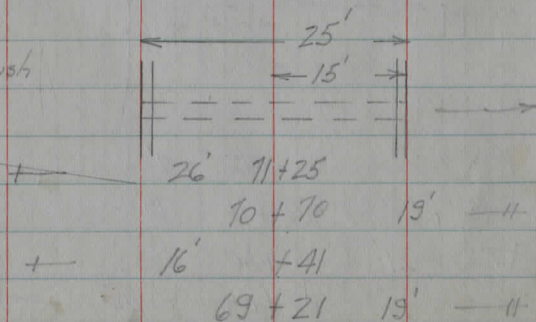 25'
15'
26' 71+25
70+70 19'
16' +41
69+21 19'